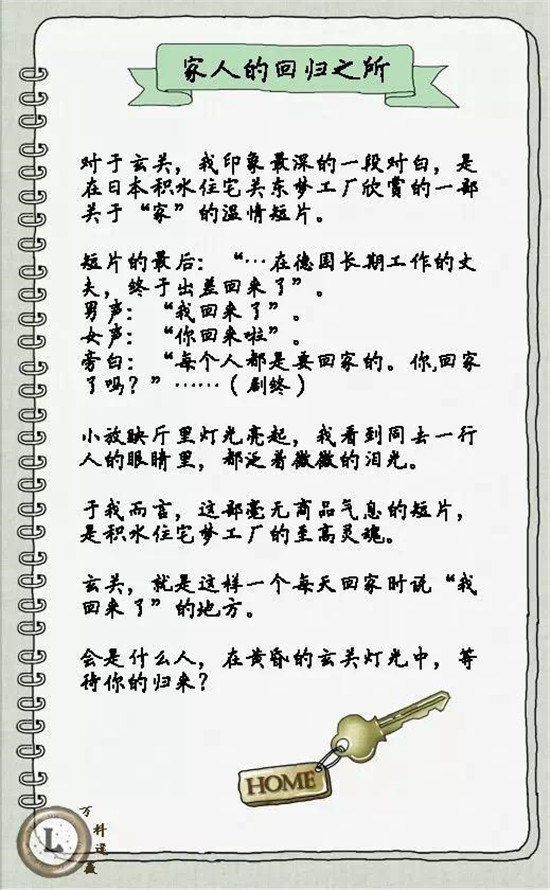 家人的回归之所
对于玄关，我印象最深的一段对白，是
在日本积水住宅关东梦工厂欣赏的一部
关于“家”的温情短片。
短片的最后：“…在德国长期工作的丈
夫，终于出差回来了”。
男声：“我回来了”。
女声：“你回来啦”。
旁白：“每个人都是要回家的。你,回家
了吗？”……（剧终）
小放映厅里灯光亮起，我看到同去一行
人的眼睛里，都泛着微微的泪光。
于我而言，这部毫无商品气息的短片，
是积水住宅梦工厂的至高灵魂。
玄关，就是这样一个每天回家时说“我
回来了”的地方。
会是什么人，在黄昏的玄关灯光中，等
待你的归来？
HOME
L
万科逻薇